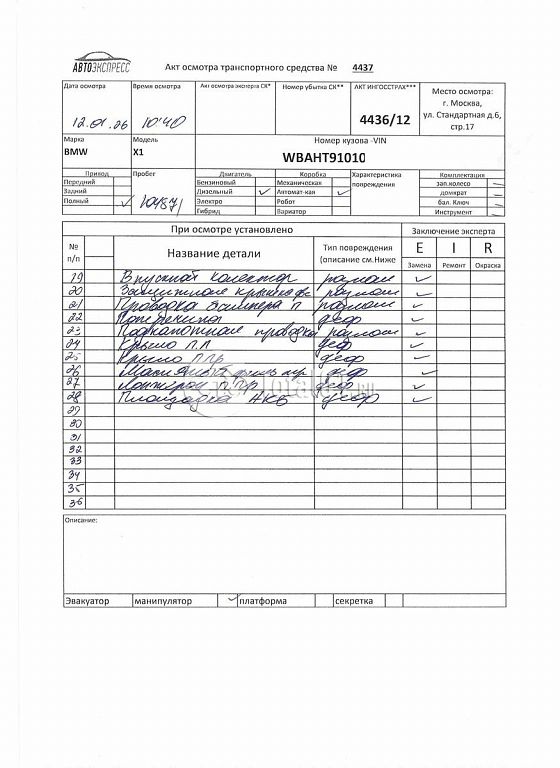 АВТОЭКСПРЕСС
Акт осмотра транспортного средства № 4437
Дата осмотра
Время осмотра
Акт осмотра эксперта СК*
Номер убытка СК**
АКТ ИНГОССТРАХ***
Место осмотра:
12.01.26
10:40
4436/12
г. Москва,
ул. Стандартная д.6,
стр.17
Марка
Модель
Номер кузова -VIN
BMW
X1
WBAHT91010
Привод
Пробег
Двигатель
Коробка
Характеристика повреждения
Комплектация
Передний
Бензиновый
Механическая
зап.колесо
Задний
Дизельный
Автомат-кая
домкрат
Полный
Электро
Робот
бал. Ключ
Гибрид
Вариатор
Инструмент
При осмотре установлено
Заключение эксперта
№ п/п
Название детали
Тип повреждения (описание см.Ниже
E
I
R
Замена
Ремонт
Окраска
19 Впускной колектор
20
21 Проводка бампера П
22 деф
23 Подкапотная проводка
24 Крыло ПЛ деф
25 Крыло ППр деф
26 деф
27 Лонжерон ППр деф
28 Площадка АКБ деф
29
30
31
32
33
34
35
36
Описание:
Эвакуатор
манипулятор
платформа
секретка